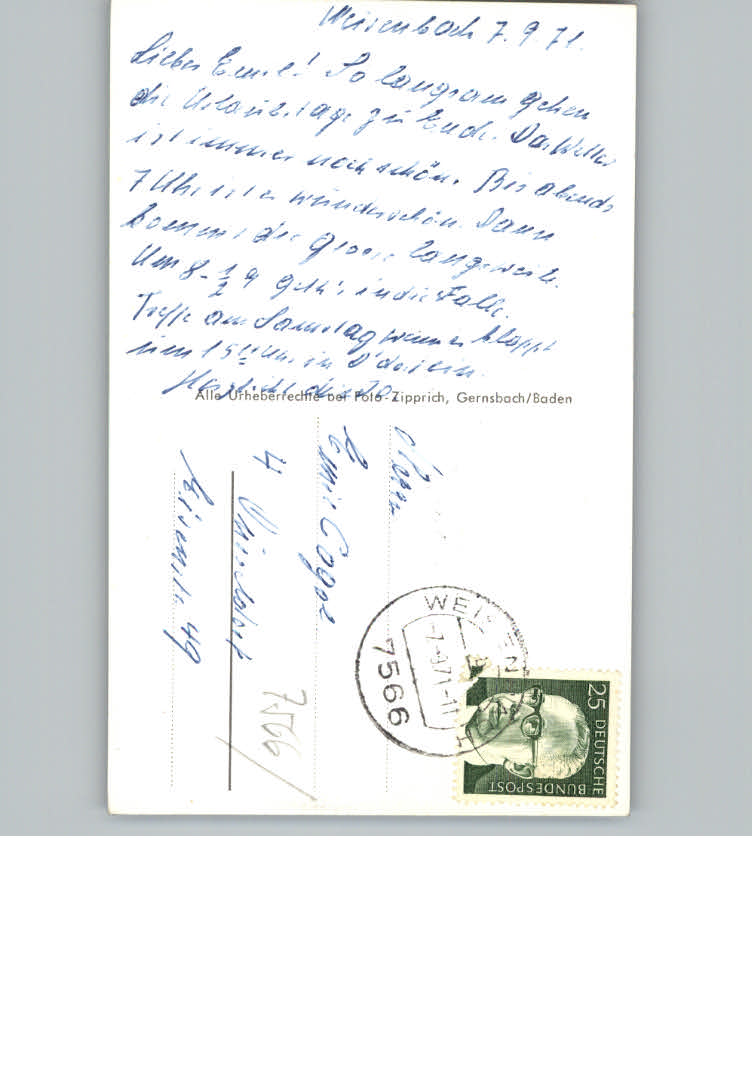 Weisenbach 7.9.71.
Lieber Emil! So langsam gehen
die Urlaubstage zu Ende. Das Wetter
ist immer noch schön. Bis abends
7 Uhr ist es wunderschön. Dann
kommt die grosse Langeweile.
Um 8-½9 geht's in die Falle.
Treffe am Samstag wenn es klappt
um 15 Uhr in D'dorf ein.
Herzlichst
Alle Urheberrechte bei Foto-Zipprich, Gernsbach/Baden
Herrn
Emil
4 Düsseldorf
49
7566
WEISEN
-7.-9.71-11
7566
25 DEUTSCHE
BUNDESPOST